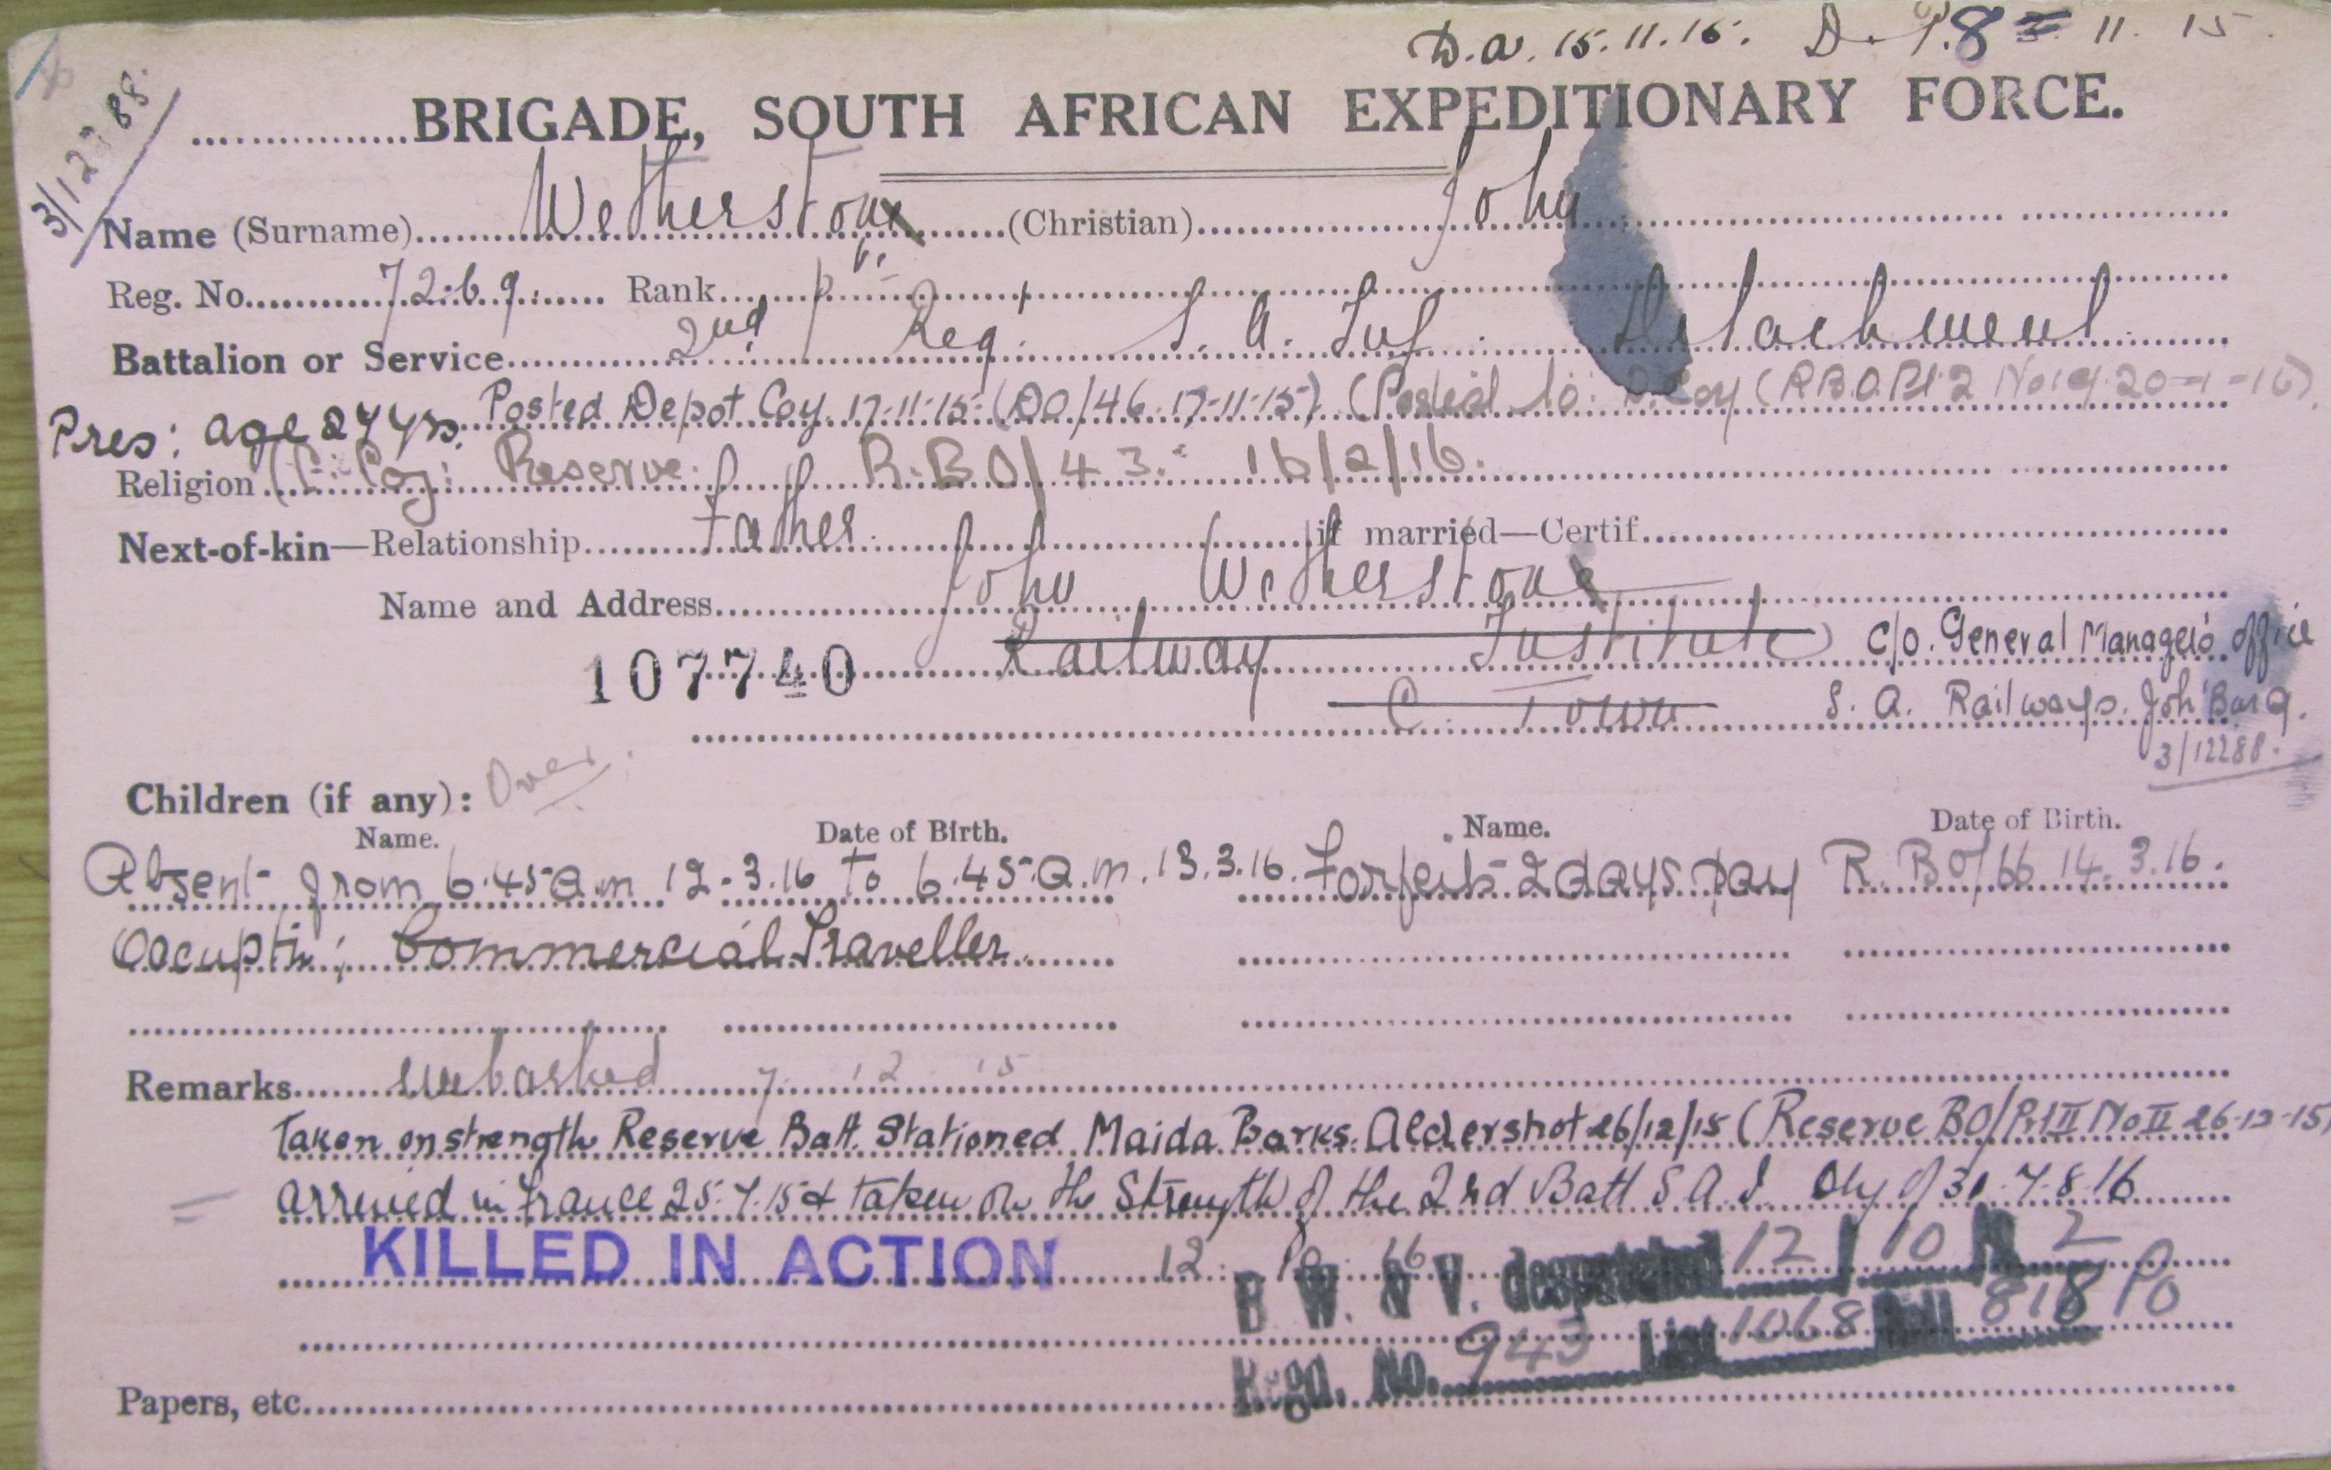 D.a. 15.11.15. D. P. 8 11. 15.
3/12288.
BRIGADE, SOUTH AFRICAN EXPEDITIONARY FORCE.
Name (Surname) Wetherston (Christian) John
Reg. No. 7269. Rank
Battalion or Service 2nd Reg. S. A. Inf. Detachment
Pres: age 27 yrs. Posted Depot Coy. 17-11-15 (DO/46. 17-11-15) (Posted to: D. Coy (RBO Pt 2 No 19. 20-1-16).
Religion Coy: Reserve: R.BO/43. 16/2/16.
Next-of-kin—Relationship Father. if married—Certif.
Name and Address John Wetherston
107740 Railway Institute C/o. General Manager's Office
C. Town S. A. Railways. Joh'Burg.
3/12288.
Children (if any): Over.
Name. Date of Birth. Name. Date of Birth.
Absent from 6.45 a.m 12.3.16 to 6.45 a.m. 13.3.16. Forfeits 2 days pay R. BO/66 14.3.16.
Occuptn: Commercial Traveller.
Remarks embarked 7 12 15
Taken on strength Reserve Batt. Stationed Maida Barks. Aldershot 26/12/15 (Reserve BO/Prt II No II 26-12-15)
arrived in France 25.7.15 & taken on the Strength of the 2nd Batt S.A.I. 7.8.16
KILLED IN ACTION 12. 10. 16
B W. & V. despatched 12 / 10 2
Regd. No. 943 List 1068 Roll 818 PO
Papers, etc.